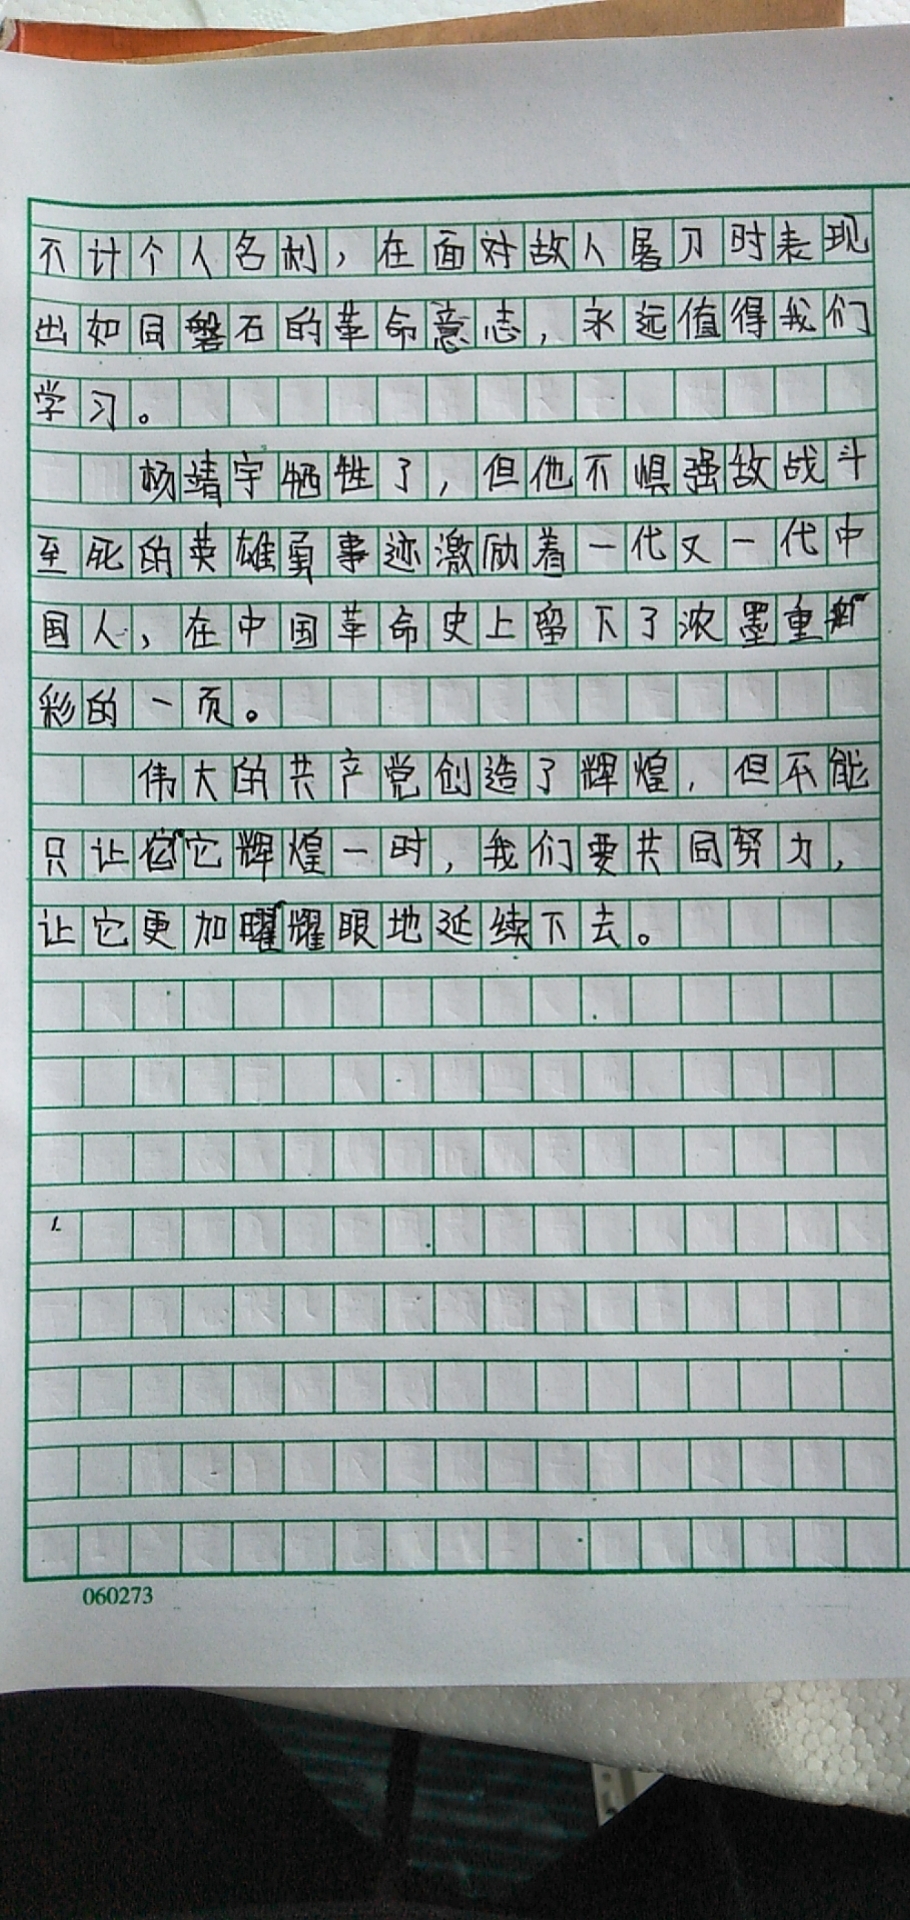 不计个人名利，在面对故人屠刀时表现
出如同磐石的革命意志，永远值得我们
学习。
杨靖宇牺牲了，但他不惧强敌战斗
至死的英雄勇事迹激励着一代又一代中
国人，在中国革命史上留下了浓墨重
彩的一页。
伟大的共产党创造了辉煌，但不能
只让它辉煌一时，我们要共同努力，
让它更加耀眼地延续下去。
1.
060273